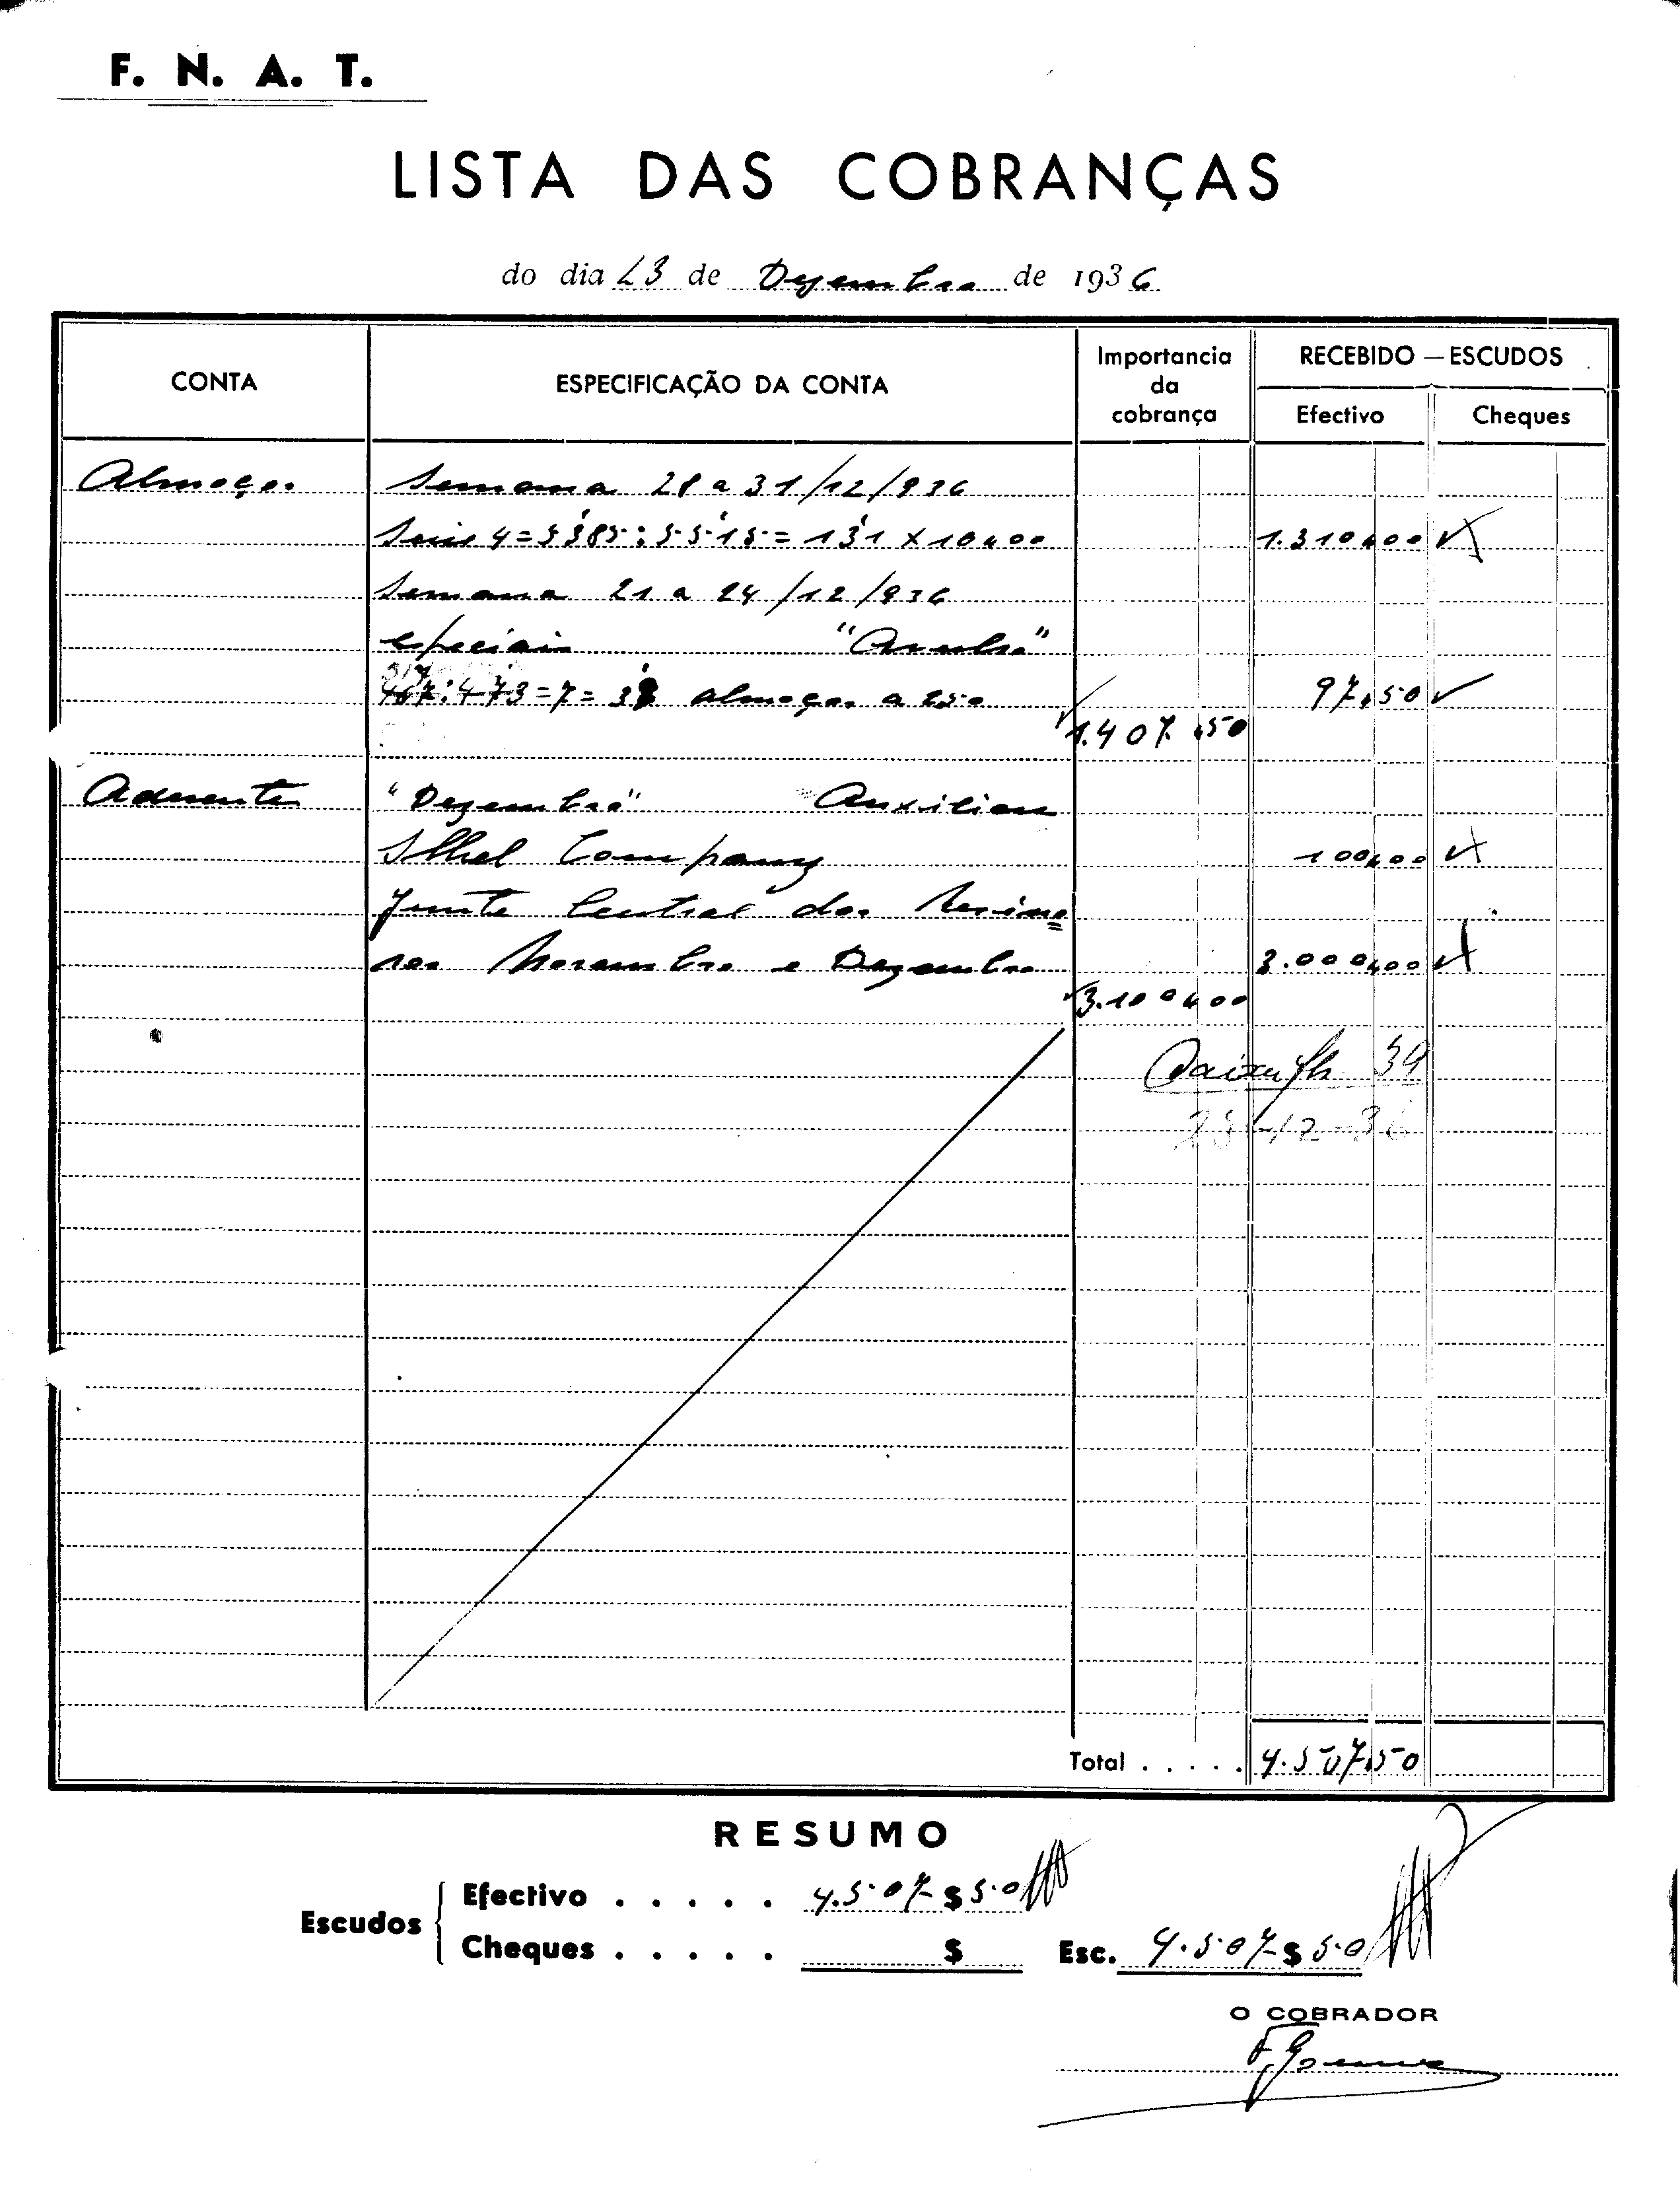 F. N. A. T.
LISTA DAS COBRANÇAS
do dia 23 de Dezembro de 1936
CONTA
ESPECIFICAÇÃO DA CONTA
Importancia da cobrança
RECEBIDO — ESCUDOS
Efectivo
Cheques
Almoços Semana 28 a 31/12/936
Serie 4 = 5385 : 5515 = 131 X 10$00 1.310$00
Semana 21 a 24/12/936
especiais
= 7 = 39 almoços a 2$50 97$50
1.407$50
Aderente "Dezembro" Auxiliar
Shel Company 100$00
Junta Central dos Resino
sos Novembro e Dezembro 3.000$00
3.100$00
Caixa fls 34
23-12-36
Total . . . . . 4.507$50
RESUMO
Escudos
Efectivo . . . . . 4.507$50
Cheques . . . . . $
Esc. 4.507$50
O COBRADOR